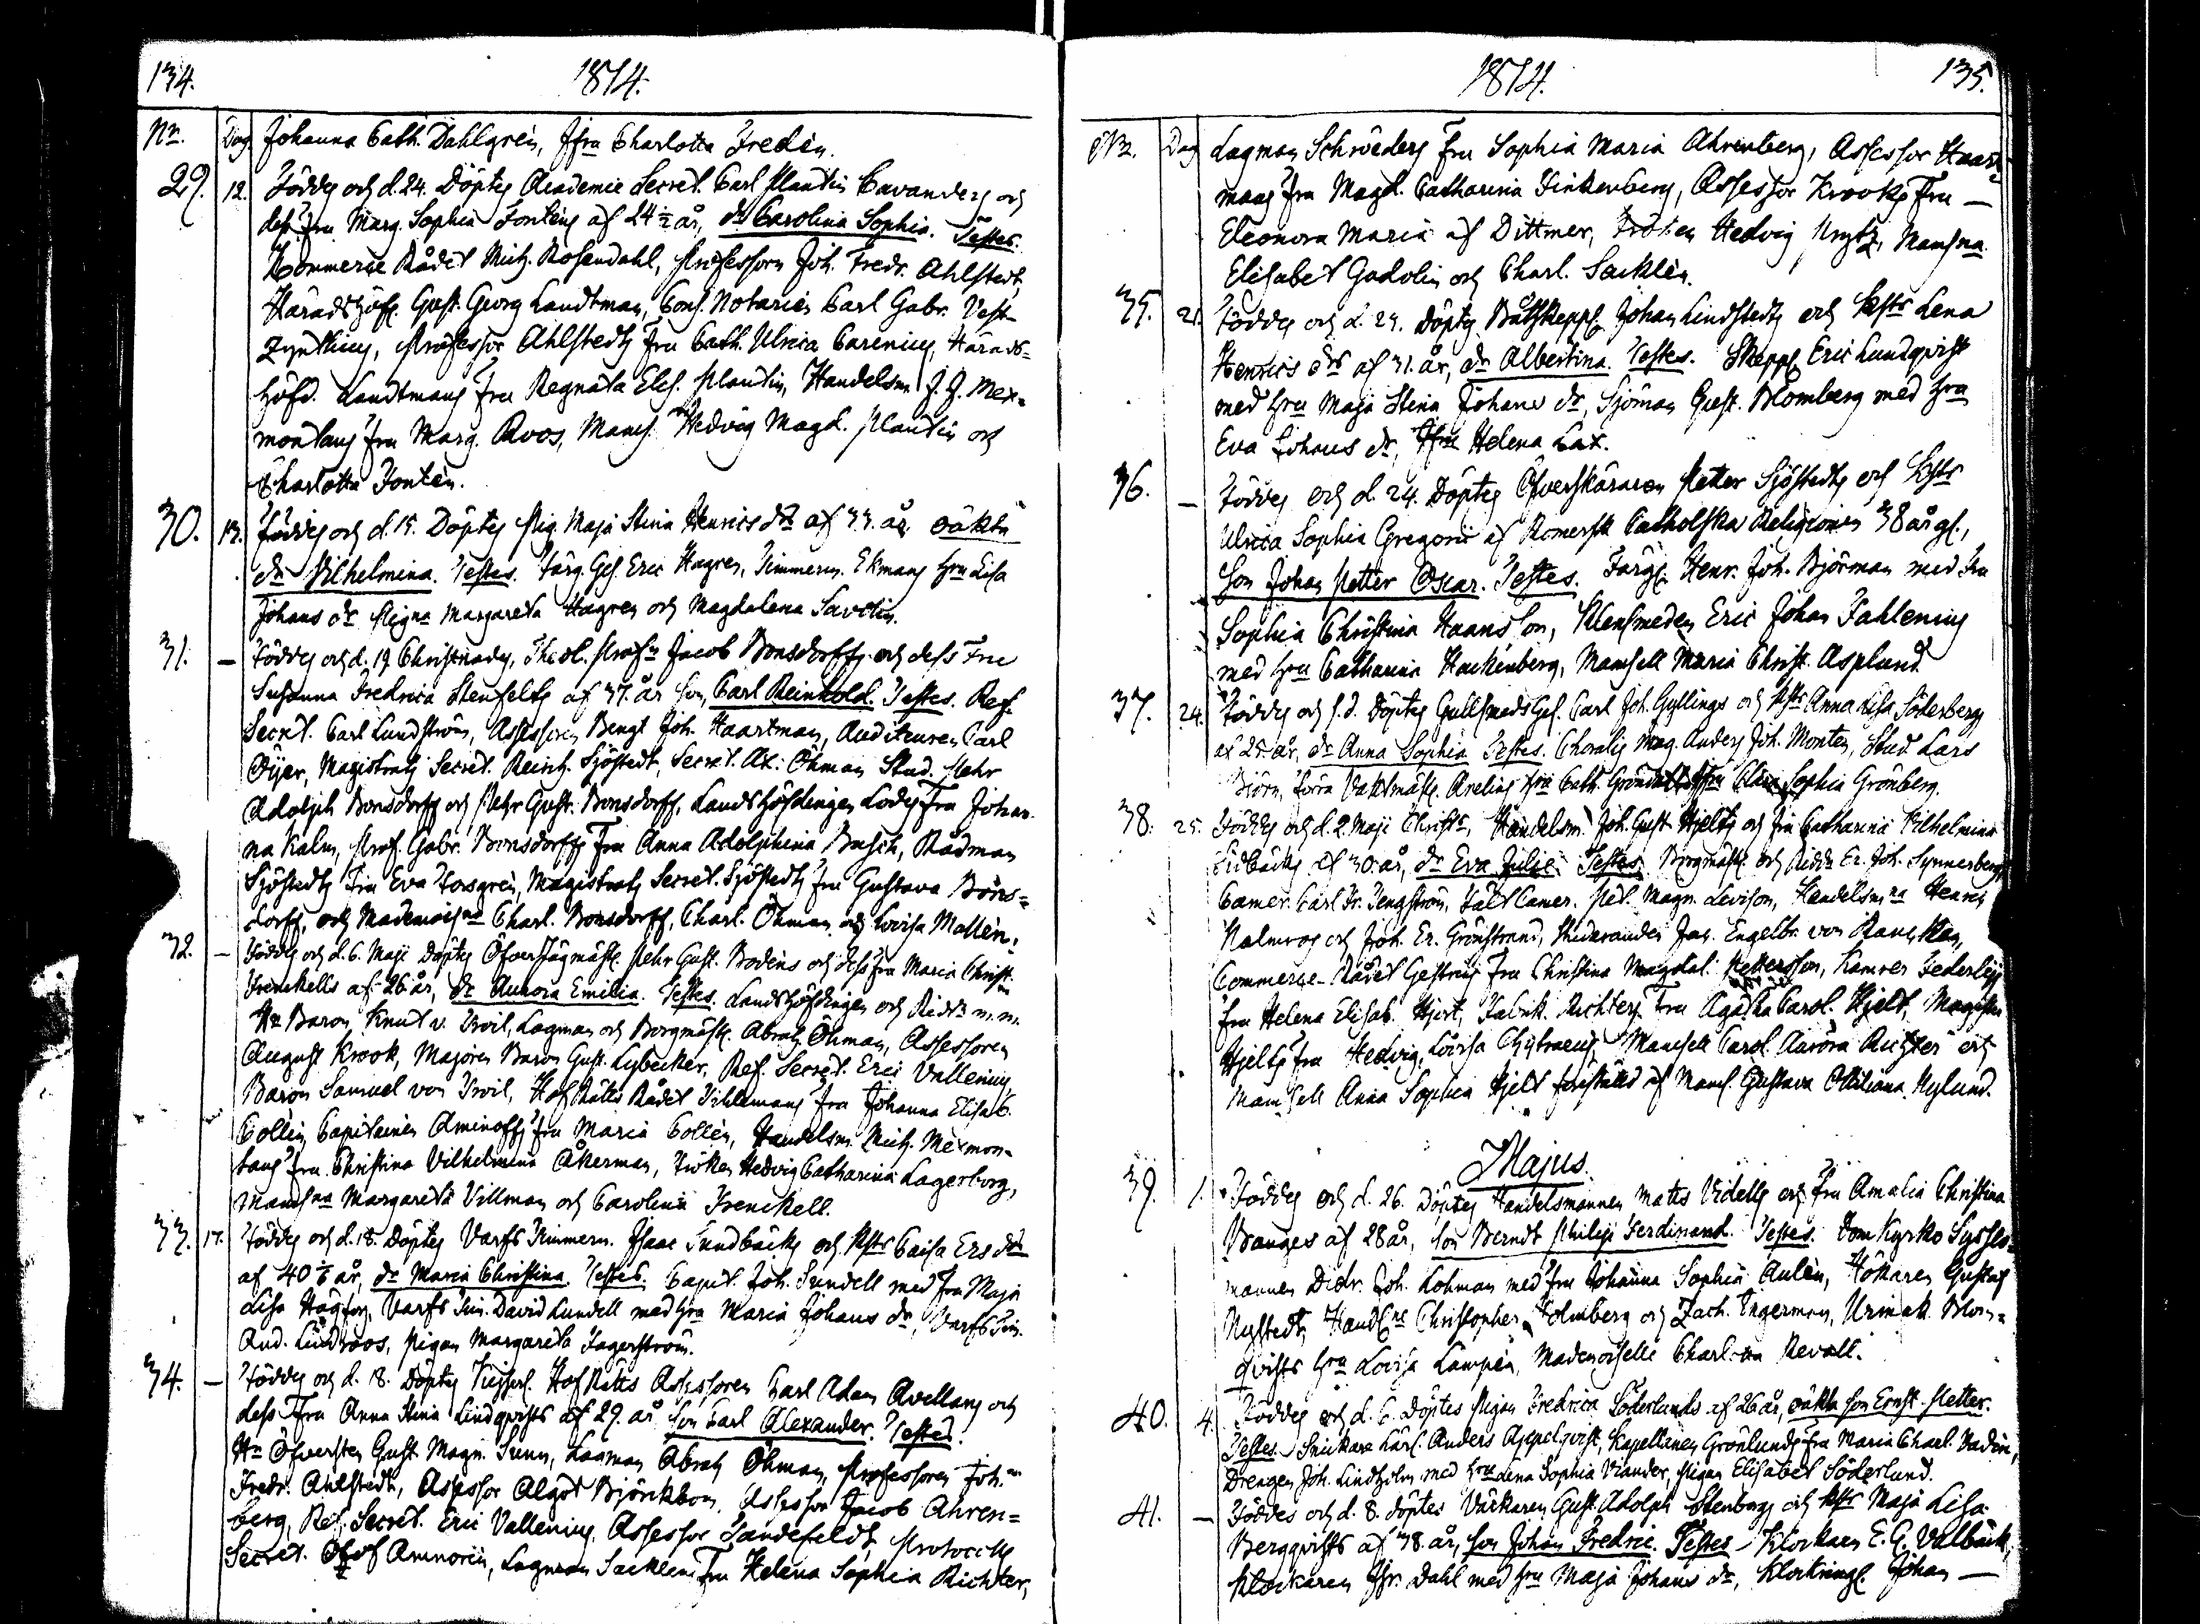 134. 1814.
Nr. Dag Johanna Cath. Dahlgrén, Jfru Charlotta Fredén.
29. 12. Föddes och d. 24. Döptes Academie Secret. Carl Plantin Cavanders och
dess fru Marg. Sophia Fonténs af 24½ år, dr Carolina Sophia. Testes.
Kommerse Rådet Mich. Rosendahl, Professorn Joh. Fredr. Ahlstedt,
Häradshöfd. Gust. Georg Landtman, Cons. Notarien Carl Gabr. Vest
zynthius, Professor Ahlstedts fru Cath. Ulrica Carenius, Härads=
höfd. Landtmans fru Regnata Elis. Plantin, Handelsm. J. J. Mex=
montans fru Marg. Roos, Mams. Hedvig Magd. Plantin och
Charlotta Fontén.
30. 13. Föddes och d. 15. Döptes Pig. Maja Stina Henrics dr af 33. år oäkta
dr Vilhelmina. Testes. Färg. Ges. Eric Hagren, Timmerm. Ekmans hru Lisa
Johans dr Pigna Margareta Hagren och Magdalena Savelin.
31. — Föddes och d. 19 Christnades, Theol. Profrn Jacob Bonsdorffs och dess Fru
Susanna Fredrica Stenfelts af 37. år son, Carl Reinhold. Testes. Ref.
Secret. Carl Lundström, Assessoren Bengt Joh. Haartman, Auditeuren Carl
Öijer, Magistrats Secret. Reinh. Sjöstedt, Secret. Ax: Öhman Stud. Pehr
Adolph Bonsdorff och Pehr Gust. Bonsdorff, Landshöfdingen Lodes Fru Johan=
na Kalm, Prof. Gabr. Bonsdorffs Fru Anna Adolphina Busch, Rådman
Sjöstedts Fru Eva Forsgren, Magistrats Secret. Sjöstedts fru Gustava Bons=
dorff, och Mademoisna Charl. Bonsdorff, Charl. Öhman och Lovisa Mollen.
32. — Föddes och d. 6. Maji Döptes Öfverjägmäst. Pehr Gust. Bodéns och dess fru Maria Christ:
Frenckells af 26 år, dr Aurora Emilia. Testes. Landshöfdingen och Riddn m.m.
Hr Baron Knut v. Troil, Lagman och Borgmäst. Abrah. Öhman, Assessoren
August Krook, Majoren Baron Gust. Lybecker, Ref. Secret. Eric Vallenius,
Baron Samuel von Troil, HofRätts Rådet Vihlemans fru Johanna Elisab.
Collin, Capitainen Aminoffs fru Maria Collén, Handelsm. Mich. Mexmon=
tans fru Christina Vilhelmina Åkerman, Fröken Hedvig Catharina Lagerborg,
Mamsna Margareta Villman och Carolina Frenckell.
33. 17. Föddes och d. 18. Döptes Varfs Timmerm. Isaac Sundbäcks och Hstr Caisa Ers dr
af 40 år, dr Maria Christina. Testes. Capit. Joh. Sundell med fru Maja
Lisa Högfors, Varfs Tim. David Lundell med hru Maria Johans dr, Varfs Tim.
And. Lindroos, Pigan Margareta Fagerström.
34. — Föddes och d. 18. Döptes Kejserl. HofRätts Assessoren Carl Adam Avellans och
dess Fru Anna Stina Lindqvists af 29. år son Carl Alexander. Testes.
Hr Öfversten Gust. Magn. Sunn, Lagman Abrah. Öhman, Professoren Joh.
Fredr. Ahlstedt, Assessor Algot Björkbom, Assessor Jacob Ahren=
berg, Ref. Secret. Eric Vallenius, Assessor Tandefeldt, Protocolls
Secret. Olof Amnorin, Lagman Sacklens Fru Helena Sophia Richter,
1814. 135.
Nr. Dag Lagman Schröders Fru Sophia Maria Ahrenberg, Assessor Haart=
mans fru Magd. Catharina Finkenberg, Assessor Krooks Fru —
Eleonora Maria af Dittmer, Fröken Hedvig Prytz, Mamsna
Elisabet Gadolin och Charl. Sacklén.
35. 21. Föddes och d. 23. Döptes Båtskepps. Johan Lindstedts och Hstr Lena
Henrics dr af 31. år, dr Albertina. Testes. Skepps. Eric Lundqvist
med hru Maja Stina Johans dr, Sjöman Gust. Blomberg med hru
Eva Johans dr, Jfru Helena Lax.
36. — Föddes och d. 24. Döptes Öfverskäraren Petter Sjöstedts och Hstr
Ulrica Sophia Gregorii af Romersk Catholska Religionen 38 år gl.,
son Johan Petter Oscar. Testes. Färg. Henr. Joh. Björman med Fru
Sophia Christina Haansson, Klensmeden Eric Johan Fahlenius
med hru Catharina Hackenberg, Mamsell Maria Christ. Asplund
37. 24. Föddes och s.d. Döptes Gullsmeds Ges. Carl Joh. Gyllings och Hstr Anna Lisa Söderbergs
af 25. år, dr Anna Sophia Testes. Choralis Mag. Anders Joh. Montén, Stud Lars
Björn, förra Vaktmäst. Arelins hru Cath. Sophia Grönberg.
38. 25. Föddes och d. 2. Maji Christs, Handelsm. Joh. Gust. Hjelts och fru Catharina Vilhelmina
Lidbäcks af 30. år, dr Eva Julie. Testes. Borgmäst. och Riddn Er. Joh. Synnerberg,
Camer. Carl Fr. Tengström, Fält Camer. Pet. Magn. Levison, Handelsmna Henric
Malmros och Joh. Er. Grönstrand, Studeranden Jac. Engelbr. von
Commerce-Rådet Gestrins fru Christina Magdal. Pettersson, Kamrer Federleys
fru Helena Elisab. Hjort, Fabrik. Richters fru Agatha Carol. Hjelt, Magister
Hjelts fru Hedvig Lovisa Chytraeus, Mamsell Carol. Aurora Richter och
Mamsell Anna Sophia Hjelt föreställd af Mams. Gustava Nylund.
Majus.
39. 1. Föddes och d. 26. Döptes Handelsmannen Mates Vidells och fru Amalia Christina
Banges af 28 år, son Berndt Philip Ferdinand. Testes. Dom Kyrko Sysslo=
mannen Didr. Joh. Lohman med fru Johanna Sophia Aulén, Hökaren Gustaf
Nystedt, Handlne Christopher Holmberg och Zach. Ingerman, Urmak. Blom=
qvists hru Lovisa Lampén, Mademoiselle Charl:tta Revall.
40. 4. Föddes och d. 6. Döptes Pigan Fredrica Söderlunds af 26 år, oäkta son Ernst Petter.
Testes Snickare Lärl. Anders Appelqvist, Kapellanen Grönlunds fru Maria Charl. Vadén,
Drengen Joh. Lindholm med hru Lena Sophia Viander, Pigan Elisabet Söderlund.
41. — Föddes och d. 8. döptes Värkaren Gust. Adolph Stenbergs och Hstr Maja Lisa
Bergqvists af 38. år, son Johan Fredric. Testes Klockaren E. G. Valbäck,
Klockaren Fr. Dahl med hru Maja Johans dr, Klockringl. Johan —